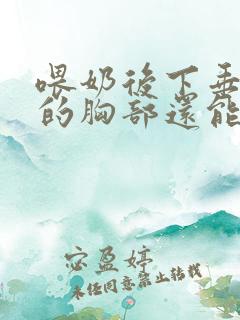 喂奶後下垂
的胸部還能
宓盈婷
未经同意禁止转载